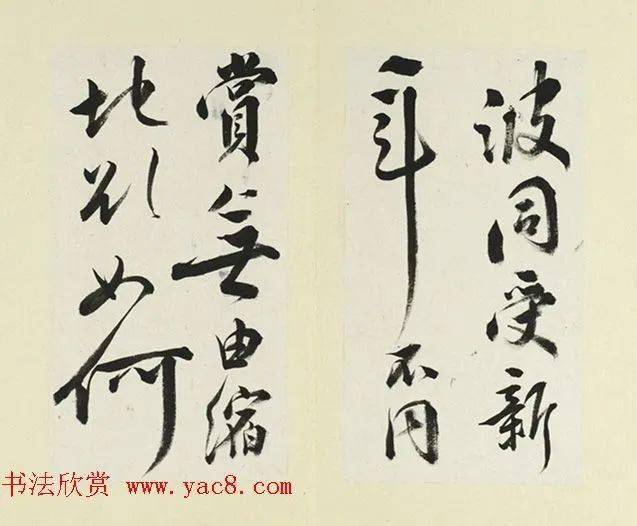 波同受新
年不同
賞無由縮
地欲如何
书法欣赏 www.yac8.com